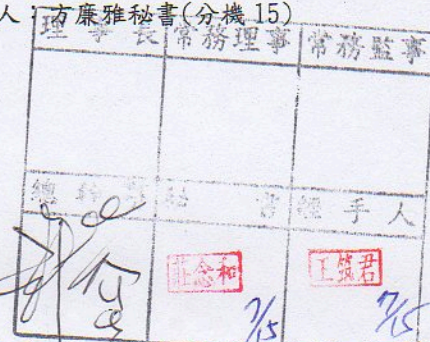 人：方廉雅秘書(分機15)
理事長 常務理事 常務監事
總幹事 秘書 經手人
莊念和 王筑君
7/15 7/15